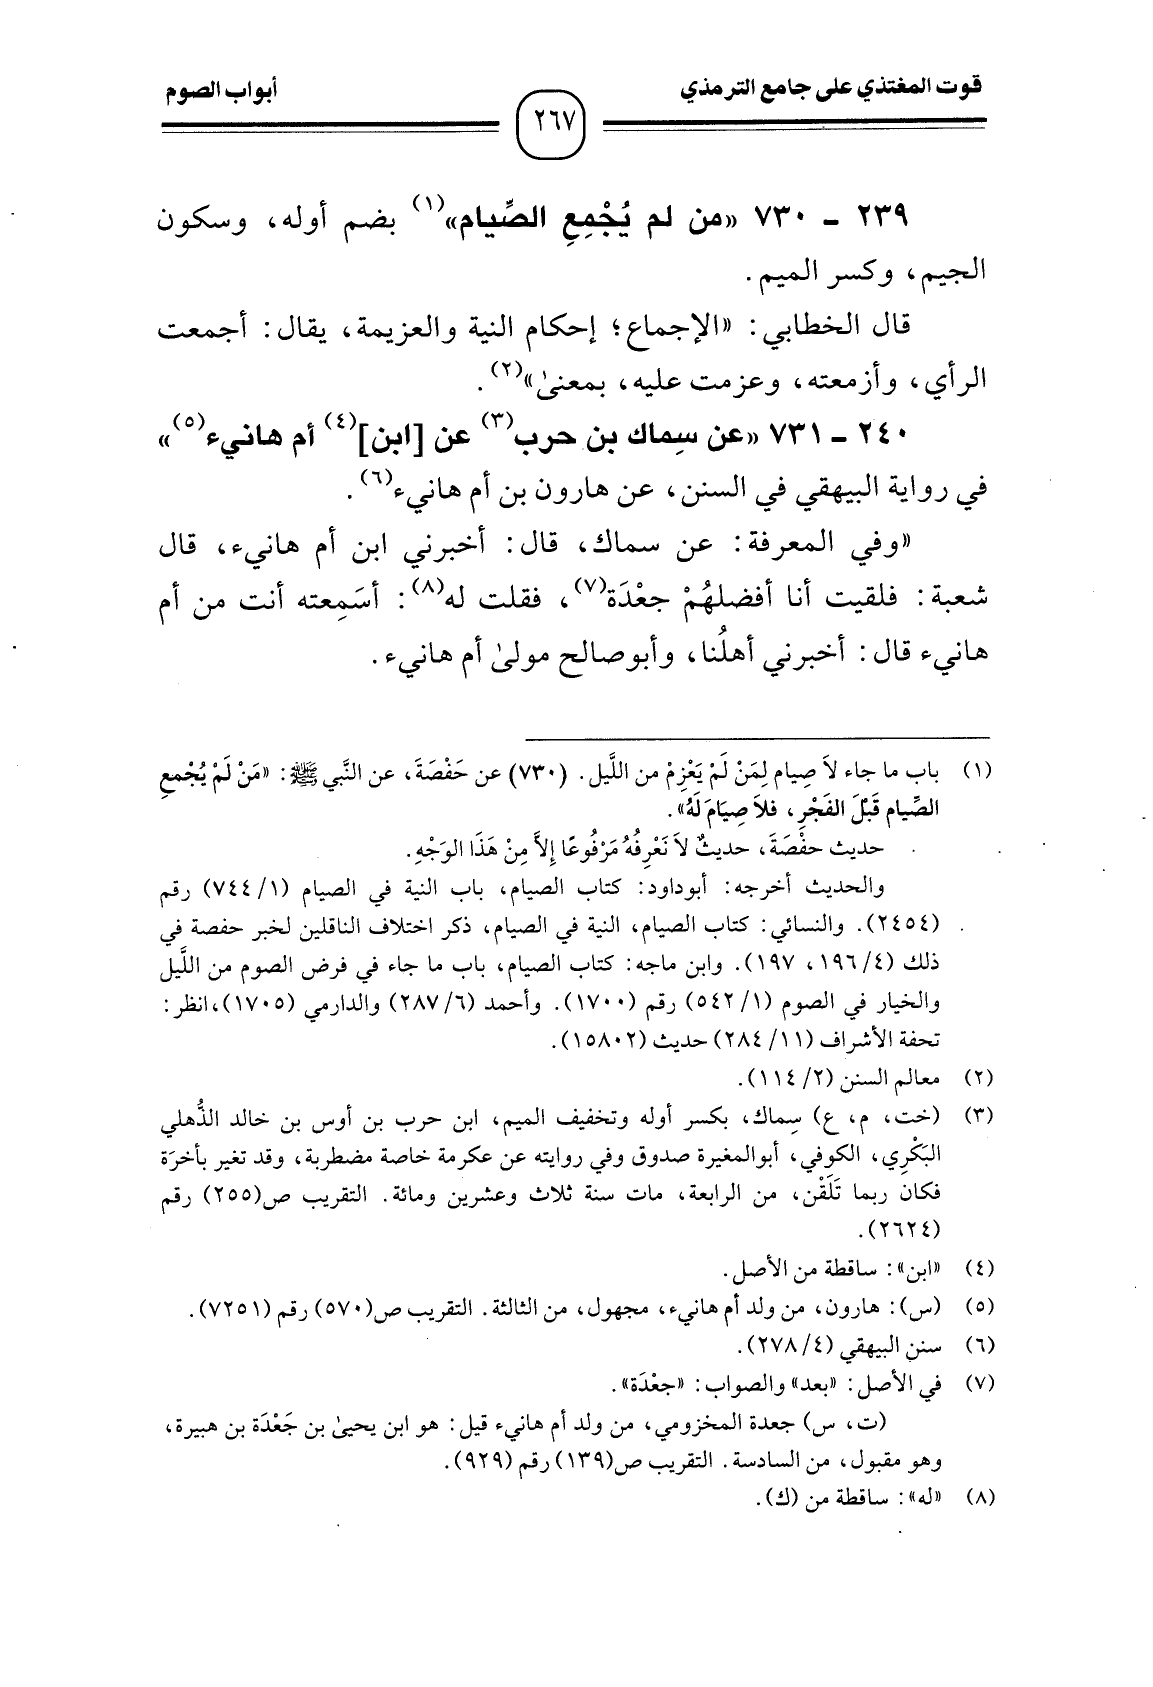 قوت المغتذي على جامع الترمذي
أبواب الصوم
٢٦٧
٢٣٩ ـ ٧٣٠ «من لم يُجْمِعِ الصِّيام»(١) بضم أوله، وسكون
الجيم، وكسر الميم.
قال الخطابي: «الإجماع؛ إحكام النية والعزيمة، يقال: أجمعت
الرأي، وأزمعته، وعزمت عليه، بمعنىٰ»(٢).
٢٤٠ ـ ٧٣١ «عن سِماك بن حرب(٣) عن [ابن](٤) أم هانيء(٥)»
في رواية البيهقي في السنن، عن هارون بن أم هانيء(٦).
«وفي المعرفة: عن سماك، قال: أخبرني ابن أم هانيء، قال
شعبة: فلقيت أنا أفضلهُمْ جعْدَة(٧)، فقلت له(٨): أسَمِعته أنت من أم
هانيء قال: أخبرني أهلُنا، وأبوصالح مولىٰ أم هانيء.
(١) باب ما جاء لاَ صِيام لِمَنْ لَمْ يَعْزِمْ من اللَّيل. (٧٣٠) عن حَفْصَةَ، عن النَّبي ﷺ: «مَنْ لَمْ يُجْمِعِ
الصِّيام قَبْلَ الفَجْرِ، فلاَ صِيَامَ لَهُ».
حديث حفْصَةَ، حديثٌ لاَ نَعْرِفُهُ مَرْفُوعًا إلاَّ مِنْ هَذَا الوَجْهِ.
والحديث أخرجه: أبوداود: كتاب الصيام، باب النية في الصيام (١/ ٧٤٤) رقم
(٢٤٥٤). والنسائي: كتاب الصيام، النية في الصيام، ذكر اختلاف الناقلين لخبر حفصة في
ذلك (٤/ ١٩٦، ١٩٧). وابن ماجه: كتاب الصيام، باب ما جاء في فرض الصوم من اللَّيل
والخيار في الصوم (١/ ٥٤٢) رقم (١٧٠٠). وأحمد (٦/ ٢٨٧) والدارمي (١٧٠٥)،انظر:
تحفة الأشراف (١١/ ٢٨٤) حديث (١٥٨٠٢).
(٢) معالم السنن (٢/ ١١٤).
(٣) (خت، م، ع) سِماك، بكسر أوله وتخفيف الميم، ابن حرب بن أوس بن خالد الذُّهلي
البَكْرِي، الكوفي، أبوالمغيرة صدوق وفي روايته عن عكرمة خاصة مضطربة، وقد تغير بأخرَة
فكان ربما تَلَقْن، من الرابعة، مات سنة ثلاث وعشرين ومائة. التقريب ص(٢٥٥) رقم
(٢٦٢٤).
(٤) «ابن»: ساقطة من الأصل.
(٥) (س): هارون، من ولد أم هانيء، مجهول، من الثالثة. التقريب ص(٥٧٠) رقم (٧٢٥١).
(٦) سنن البيهقي (٤/ ٢٧٨).
(٧) في الأصل: «بعد» والصواب: «جعْدَة».
(ت، س) جعدة المخزومي، من ولد أم هانيء قيل: هو ابن يحيىٰ بن جَعْدَة بن هبيرة،
وهو مقبول، من السادسة. التقريب ص(١٣٩) رقم (٩٢٩).
(٨) «له»: ساقطة من (ك).